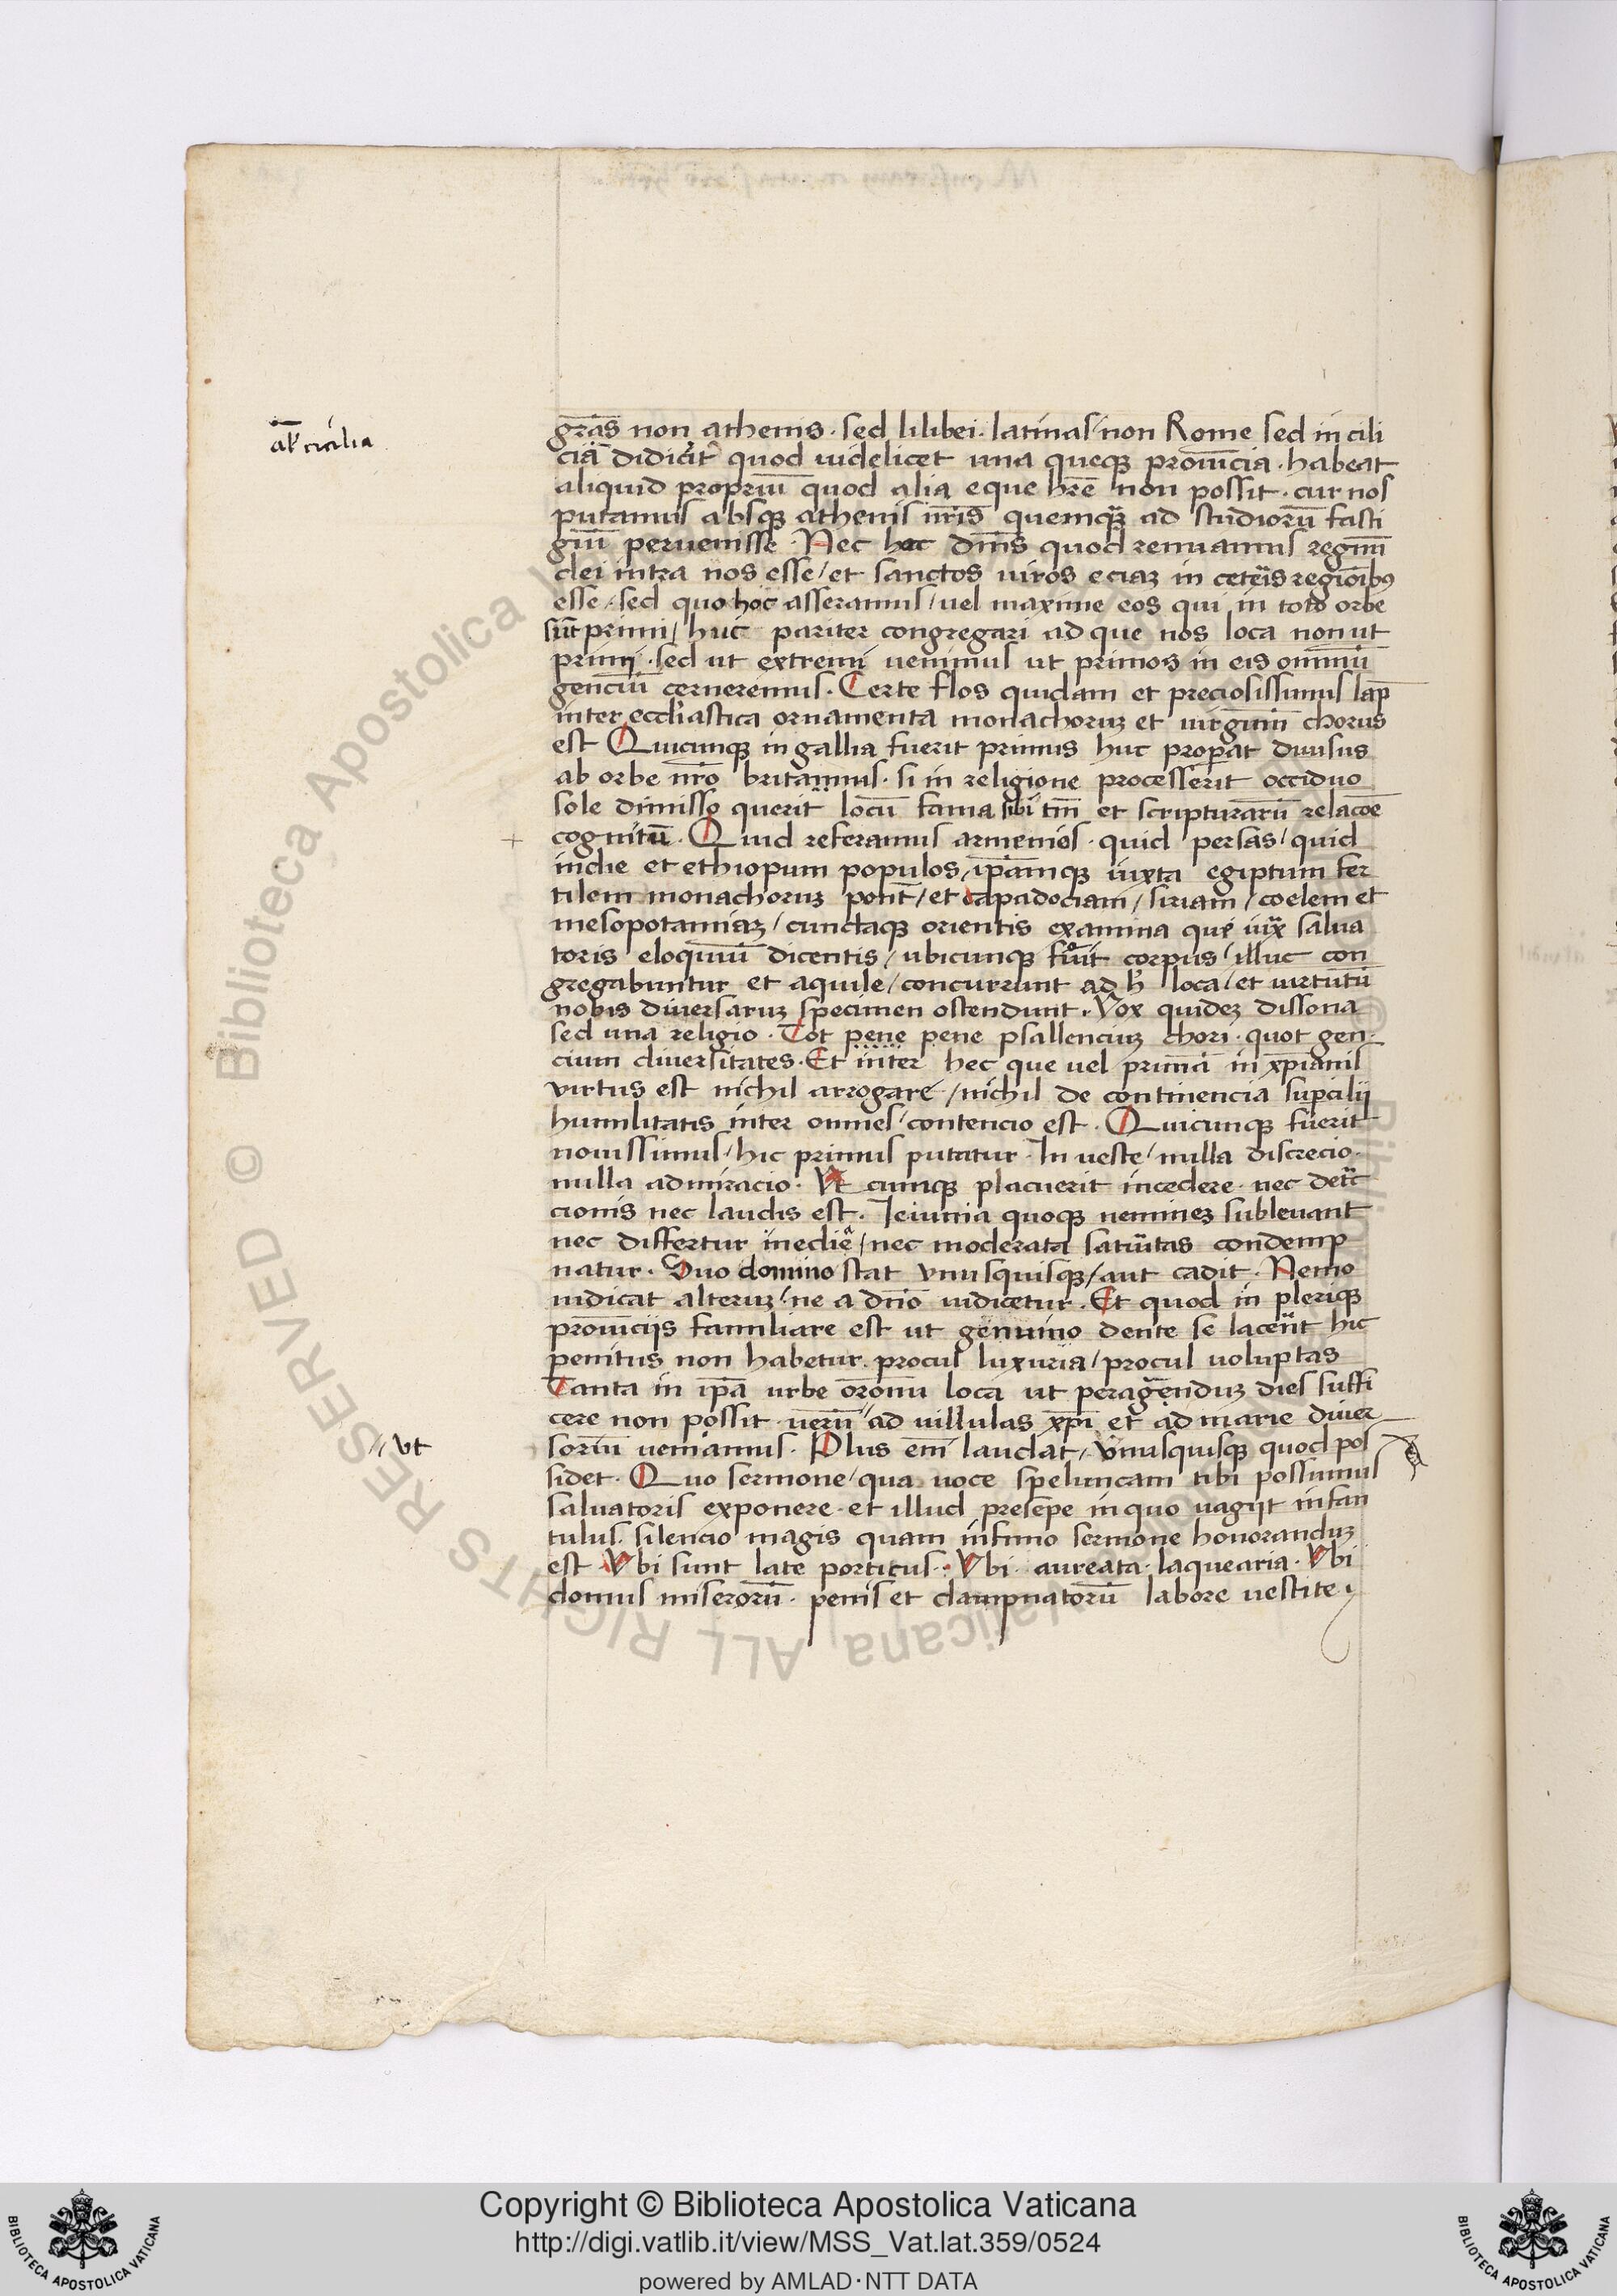 al̄ cicilia
gr̄as non athenis · sed lilibei · latinas / non Rome sed in cili
ciā didicit̄ quod uidelicet una queqꝫ prouīcia · habeat
aliquid propriū quod alia eque hr̄e non possit · cur nos
putamus absqꝫ athenis nr̄is quemqꝫ ad studiorū fasti
giū peruenisse · Nec hoc dm̄s quod renuamus regnū
dei intra nos esse / et sanctos uiros eciaꝫ in ceteris regiōibꝯ
esse / sed quo hoc asseramus / uel maxime eos qui in toto orbe
sūt primi / huc pariter congregari ad que nos loca non ut
primi · sed ut extremi uenimus ut primos in eis omniū
genciū cerneremus · Certe flos quidam et preciosissimus lap̄
inter eccl̄iastica ornamenta monachoruꝫ et uirginū chorus
est Quicunqꝫ in gallia fuerit primus huc prop̄at diuisus
ab orbe nr̄o britannus · si in religione processerit occiduo
sole dimisso querit locū fama sibi tm̄ et scripturarū relacōe
cognitū · Quid referamus armenios · quid persas / quid
indie et ethiopum populos / ip̄amqꝫ iuxta egiptum fer
tilem monachoruꝫ pont̄ / et capadociam / siriam / coelem et
mesopotamiaꝫ / cunctaqꝫ orientis examina que iux̄ salua
toris eloquiū dicentis / ubicunqꝫ fūit corpus / illuc con
gregabuntur et aquile / concurrunt ad h̄ loca / et uirtutū
nobis diuersaruꝫ specimen ostendunt · Vox quideꝫ dissona
sed una religio · Tot pene pene psallenciuꝫ chori · quot gen
cium diuersitates · Et inter hec que uel prima in xp̄ianis
virtus est nichil arrogare / nichil de continencia sup̄cilij
humilitatis inter omnes / contencio est · Quicunqꝫ fuerit
nouissimus / hic primus putatur · In ueste / nulla discrecio ·
nulla admiracio · Vt cumqꝫ placuerit incedere · nec detᵃc
cionis nec laudis est · Ieiunia quoqꝫ nemineꝫ subleuant
nec differtur inedie / nec moderata saturitas condemp
natur · Suo domino stat vnusquisqꝫ / aut cadit · Nemo
iudicat alteruꝫ / ne a dn̄o iudicetur · Et quod in plerisqꝫ
prouīcijs familiare est ut genuino dente se lacerēt hic
penitus non habetur · procul luxuria / procul uoluptas
Tanta in ip̄a urbe or̄onū loca ut peragenduꝫ dies suffi
cere non possit · uerū // ad uillulas xp̄i et ad marie diuer
soriū ueniamus · Plus em̄ laudat / vnusquisqꝫ quod pos
// vt
sidet · Quo sermone / qua uoce speluncam tibi possumus
saluatoris exponere · et illud presepe in quo uagijt infan
tulus · silencio magis quam infimo sermone honoranduꝫ
est · Vbi sunt late porticus · Vbi aureata · laquearia · Vbi
domus miserorū · penis et dampnatorū labore uestite ·
Copyright © Biblioteca Apostolica Vaticana
http://digi.vatlib.it/view/MSS_Vat.lat.359/0524
powered by AMLAD · NTT DATA
BIBLIOTECA APOSTOLICA VATICANA
BIBLIOTECA APOSTOLICA VATICANA